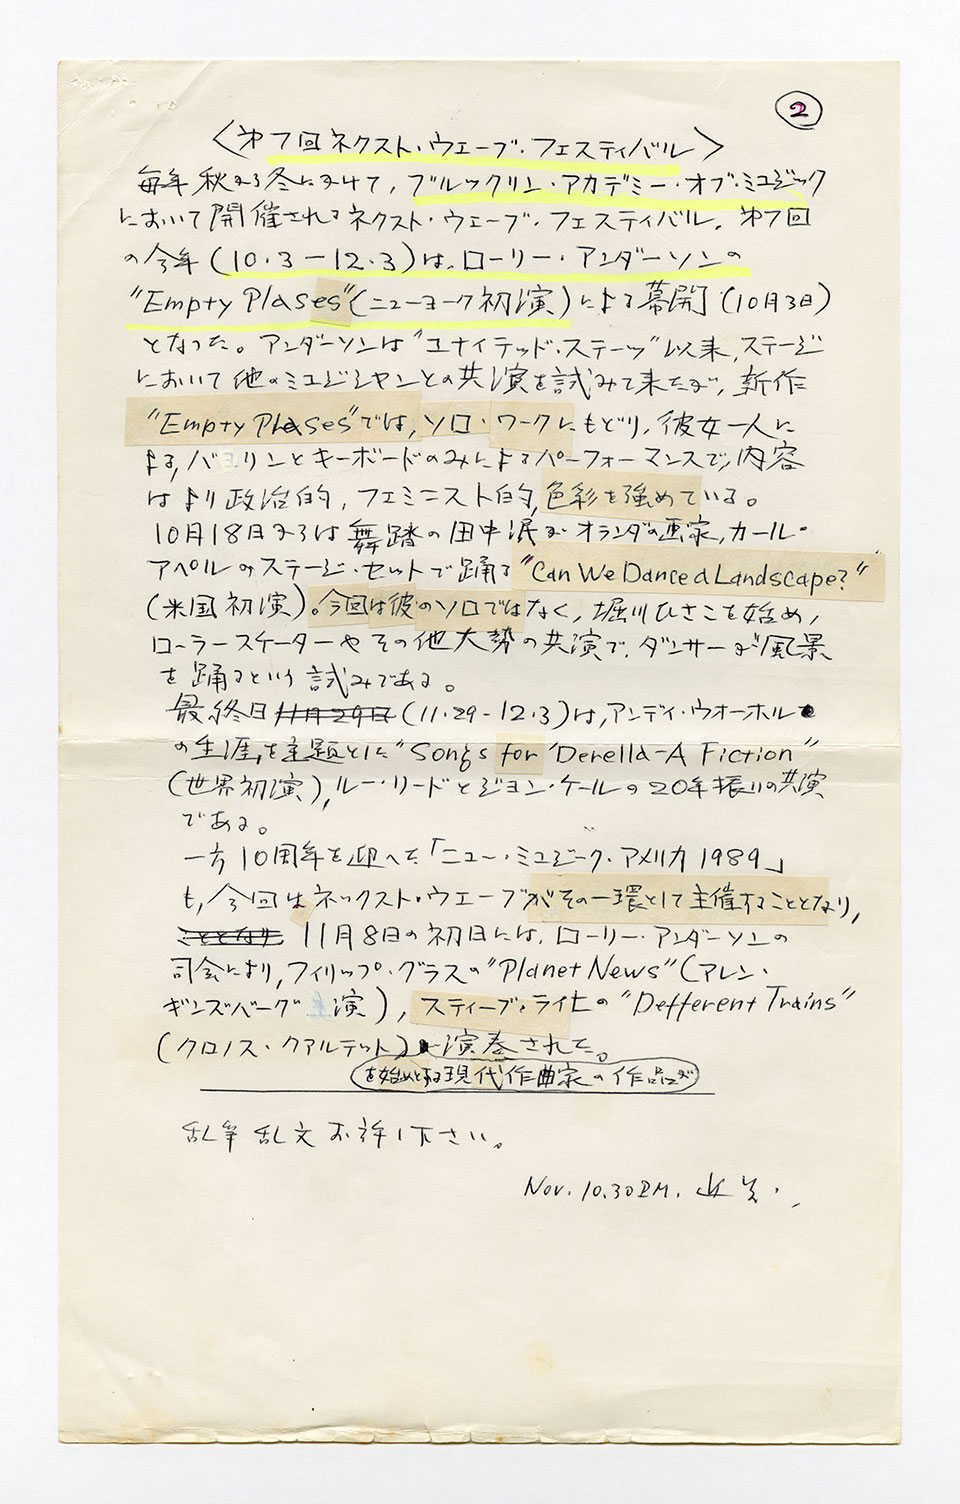 ②
〈第7回ネクスト・ウェーブ・フェスティバル〉
毎年秋から冬にかけて，ブルックリン・アカデミー・オブ・ミュジック
において開催されるネクスト・ウェーブ・フェスティバル．第7回
の今年（10.3－12.3）は，ローリー・アンダーソンの
"Empty Plases"（ニューヨーク初演）による幕開（10月3日）
となった。アンダーソンは"ユナイテッド・ステーツ"以来，ステージ
において他のミュジシャンとの共演を試みて来たが，新作
"Empty Plases"では，ソロ・ワークにもどり，彼女一人に
よる，バヨリンとキーボードのみによるパーフォーマンスで，内容
はより政治的，フェミニスト的，色彩を強めている。
10月18日からは舞踏の田中泯がオランダの画家，カール・
アペルのステージ・セットで踊る"Can We Dance a Landscape?"
（米国初演）。今回は彼のソロではなく，堀川ひさこを始め，
ローラースケーターやその他大勢の共演で，ダンサーが風景
を踊るという試みである。
最終日 11月29日（11.29-12.3）は，アンディ・ウォーホル
の生涯を主題とした"Songs for 'Derella-A Fiction"
（世界初演），ルー・リードとジョン・ケールの20年振りの共演
である。
一方10周年を迎へた「ニュー・ミュジーク・アメリカ1989」
も，今回はネックスト・ウェーブがその一環として主催することとなり，
こととなり 11月8日の初日には，ローリー・アンダーソンの
司会により，フィリップ・グラスの"Planet News"（アレン・
ギンズバーグ 演），スティーブ・ライヒの"Defferent Trains"
（クロノス・クアルテット）演奏された。
を始めとする現代作曲家の作品が
乱筆乱文お許し下さい。
Nov. 10.30PM.